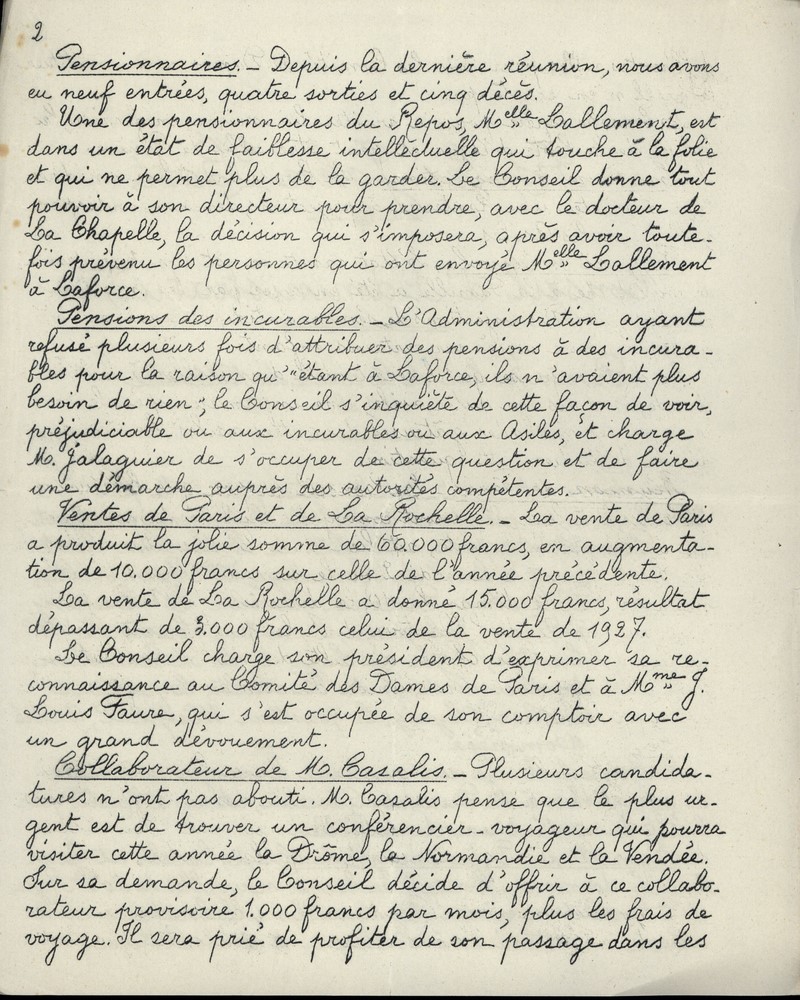 2
Pensionnaires. _ Depuis la dernière réunion, nous avons
eu neuf entrées, quatre sorties et cinq décès.
Une des pensionnaires du Repos, Melle Lallement, est
dans un état de faiblesse intellectuelle qui touche à la folie
et qui ne permet plus de la garder. Le Conseil donne tout
pouvoir à son directeur pour prendre, avec le docteur de
La Chapelle, la décision qui s'imposera, après avoir toute-
fois prévenu les personnes qui ont envoyé Melle Lallement
à Laforce.
Pensions des incurables. _ L'Administration ayant
refusé plusieurs fois d'attribuer des pensions à des incura-
bles pour la raison qu'"étant à Laforce, ils n'avaient plus
besoin de rien", le Conseil s'inquiète de cette façon de voir,
préjudiciable ou aux incurables ou aux Asiles, et charge
M. Jalaguier de s'occuper de cette question et de faire
une démarche auprès des autorités compétentes.
Ventes de Paris et de La Rochelle. _ La vente de Paris
a produit la jolie somme de 60.000 francs, en augmenta-
tion de 10.000 francs sur celle de l'année précédente.
La vente de La Rochelle a donné 15.000 francs, résultat
dépassant de 3.000 francs celui de la vente de 1927.
Le Conseil charge son président d'exprimer sa re-
connaissance au Comité des Dames de Paris et à Mme J.
Louis Faure, qui s'est occupée de son comptoir avec
un grand dévouement.
Collaborateur de M. Casalis. _ Plusieurs candida-
tures n'ont pas abouti. M. Casalis pense que le plus ur-
gent est de trouver un conférencier-voyageur qui pourra
visiter cette année la Drôme, la Normandie et la Vendée.
Sur sa demande, le Conseil décide d'offrir à ce collabo-
rateur provisoire 1.000 francs par mois, plus les frais de
voyage. Il sera prié de profiter de son passage dans les